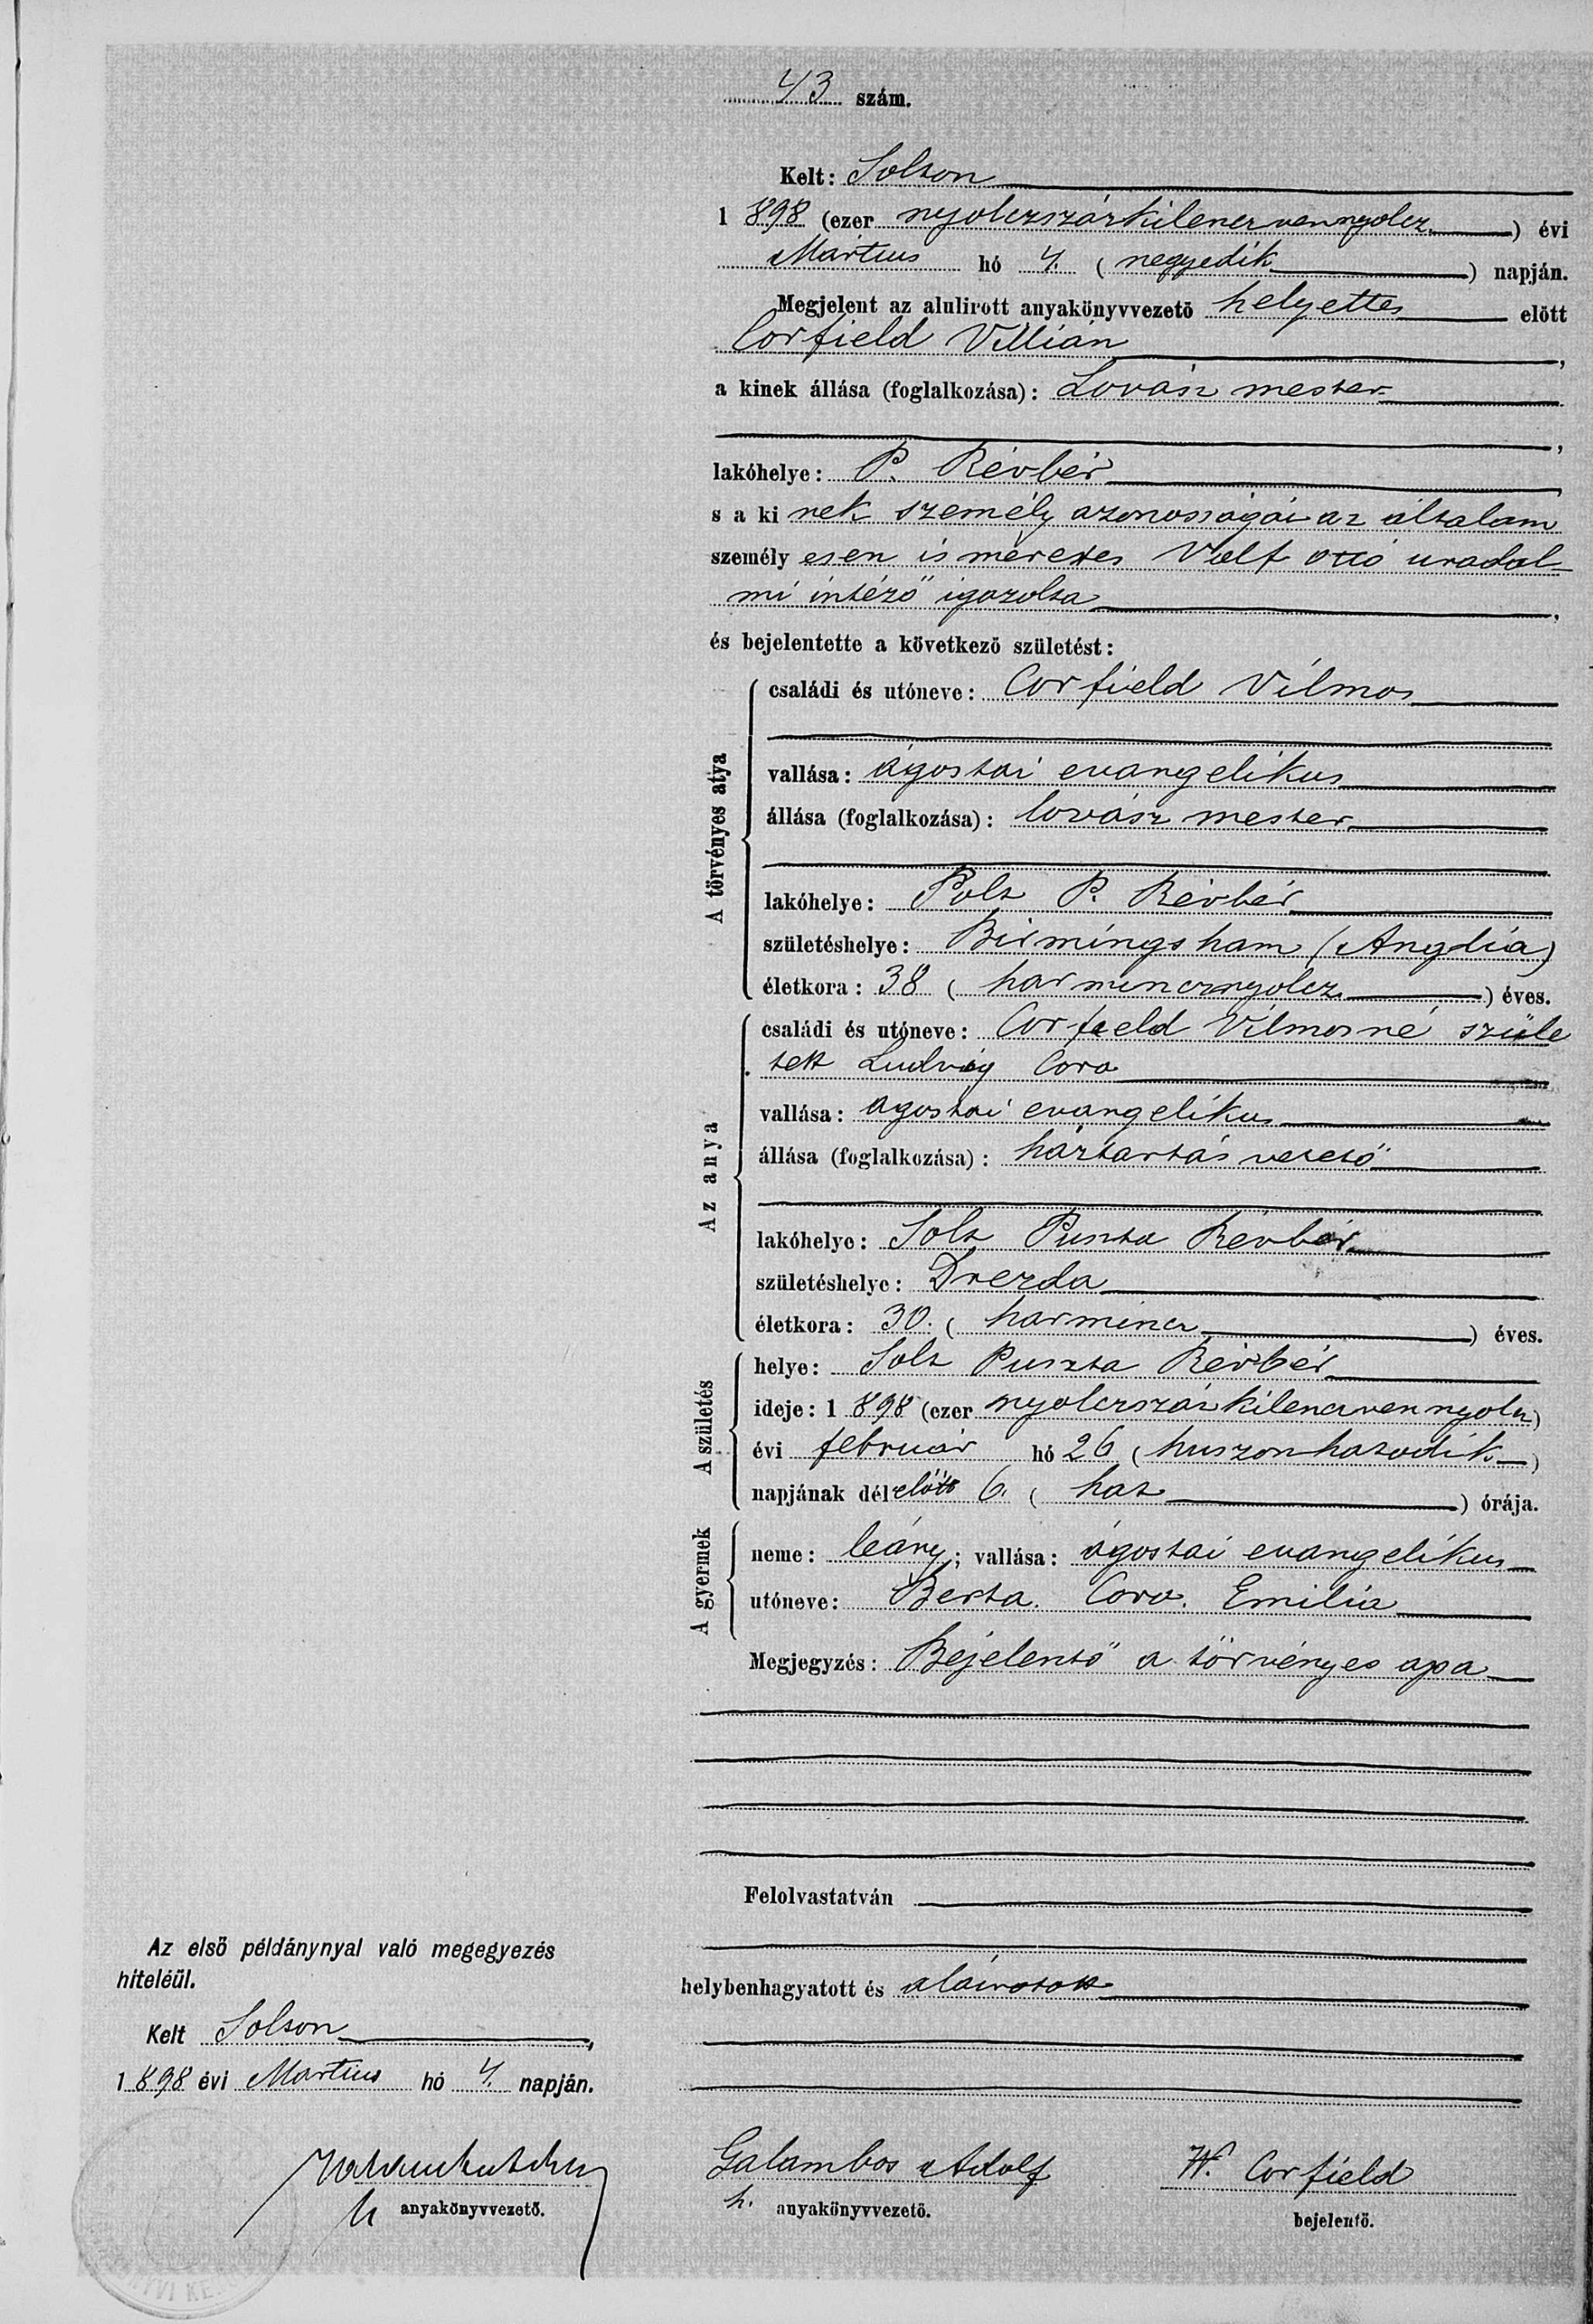 43 szám.
Kelt: Solton
1 898 (ezer nyolczszázkilenczvennyolcz) évi
Martius hó 4. (negyedik) napján.
Megjelent az alulirott anyakönyvvezető helyettes előtt
Corfield Villián,
a kinek állása (foglalkozása): Lovász mester
,
lakóhelye: P. Révbér,
s a ki nek személy azonosságát az általam
személy esen ismeretes Volf Ottó uradal-
mi intéző igazolta,
és bejelentette a következő születést:
A törvényes atya
családi és utóneve: Corfield Vilmos
vallása: ágostai evangelikus
állása (foglalkozása): lovász mester
lakóhelye: Solt P. Révbér
születéshelye: Birmingsham (Anglia)
életkora: 38 (harmincznyolcz) éves.
Az anya
családi és utóneve: Corfield Vilmosné szüle
tett Ludvig Cora
vallása: agostai evangelikus
állása (foglalkozása): háztartás vezető
lakóhelye: Solt Puszta Révbér
születéshelye: Drezda
életkora: 30. (harmincz) éves.
A születés
helye: Solt Puszta Révbér
ideje: 1 898 (ezer nyolczszázkilenczvennyolcz)
évi február hó 26 (huszonhatodik)
napjának délelőtt 6. (hat) órája.
A gyermek
neme: leány; vallása: ágostai evangelikus
utóneve: Berta. Cora. Emilia
Megjegyzés: Bejelentő a törvényes apa
Felolvastatván
helybenhagyatott és aláiratott
Galambos Adolf
h. anyakönyvvezető.
W. Corfield
bejelentő.
Az első példánynyal való megegyezés
hiteléül.
Kelt Solton,
1 898 évi Martius hó 4. napján.
h anyakönyvvezető.